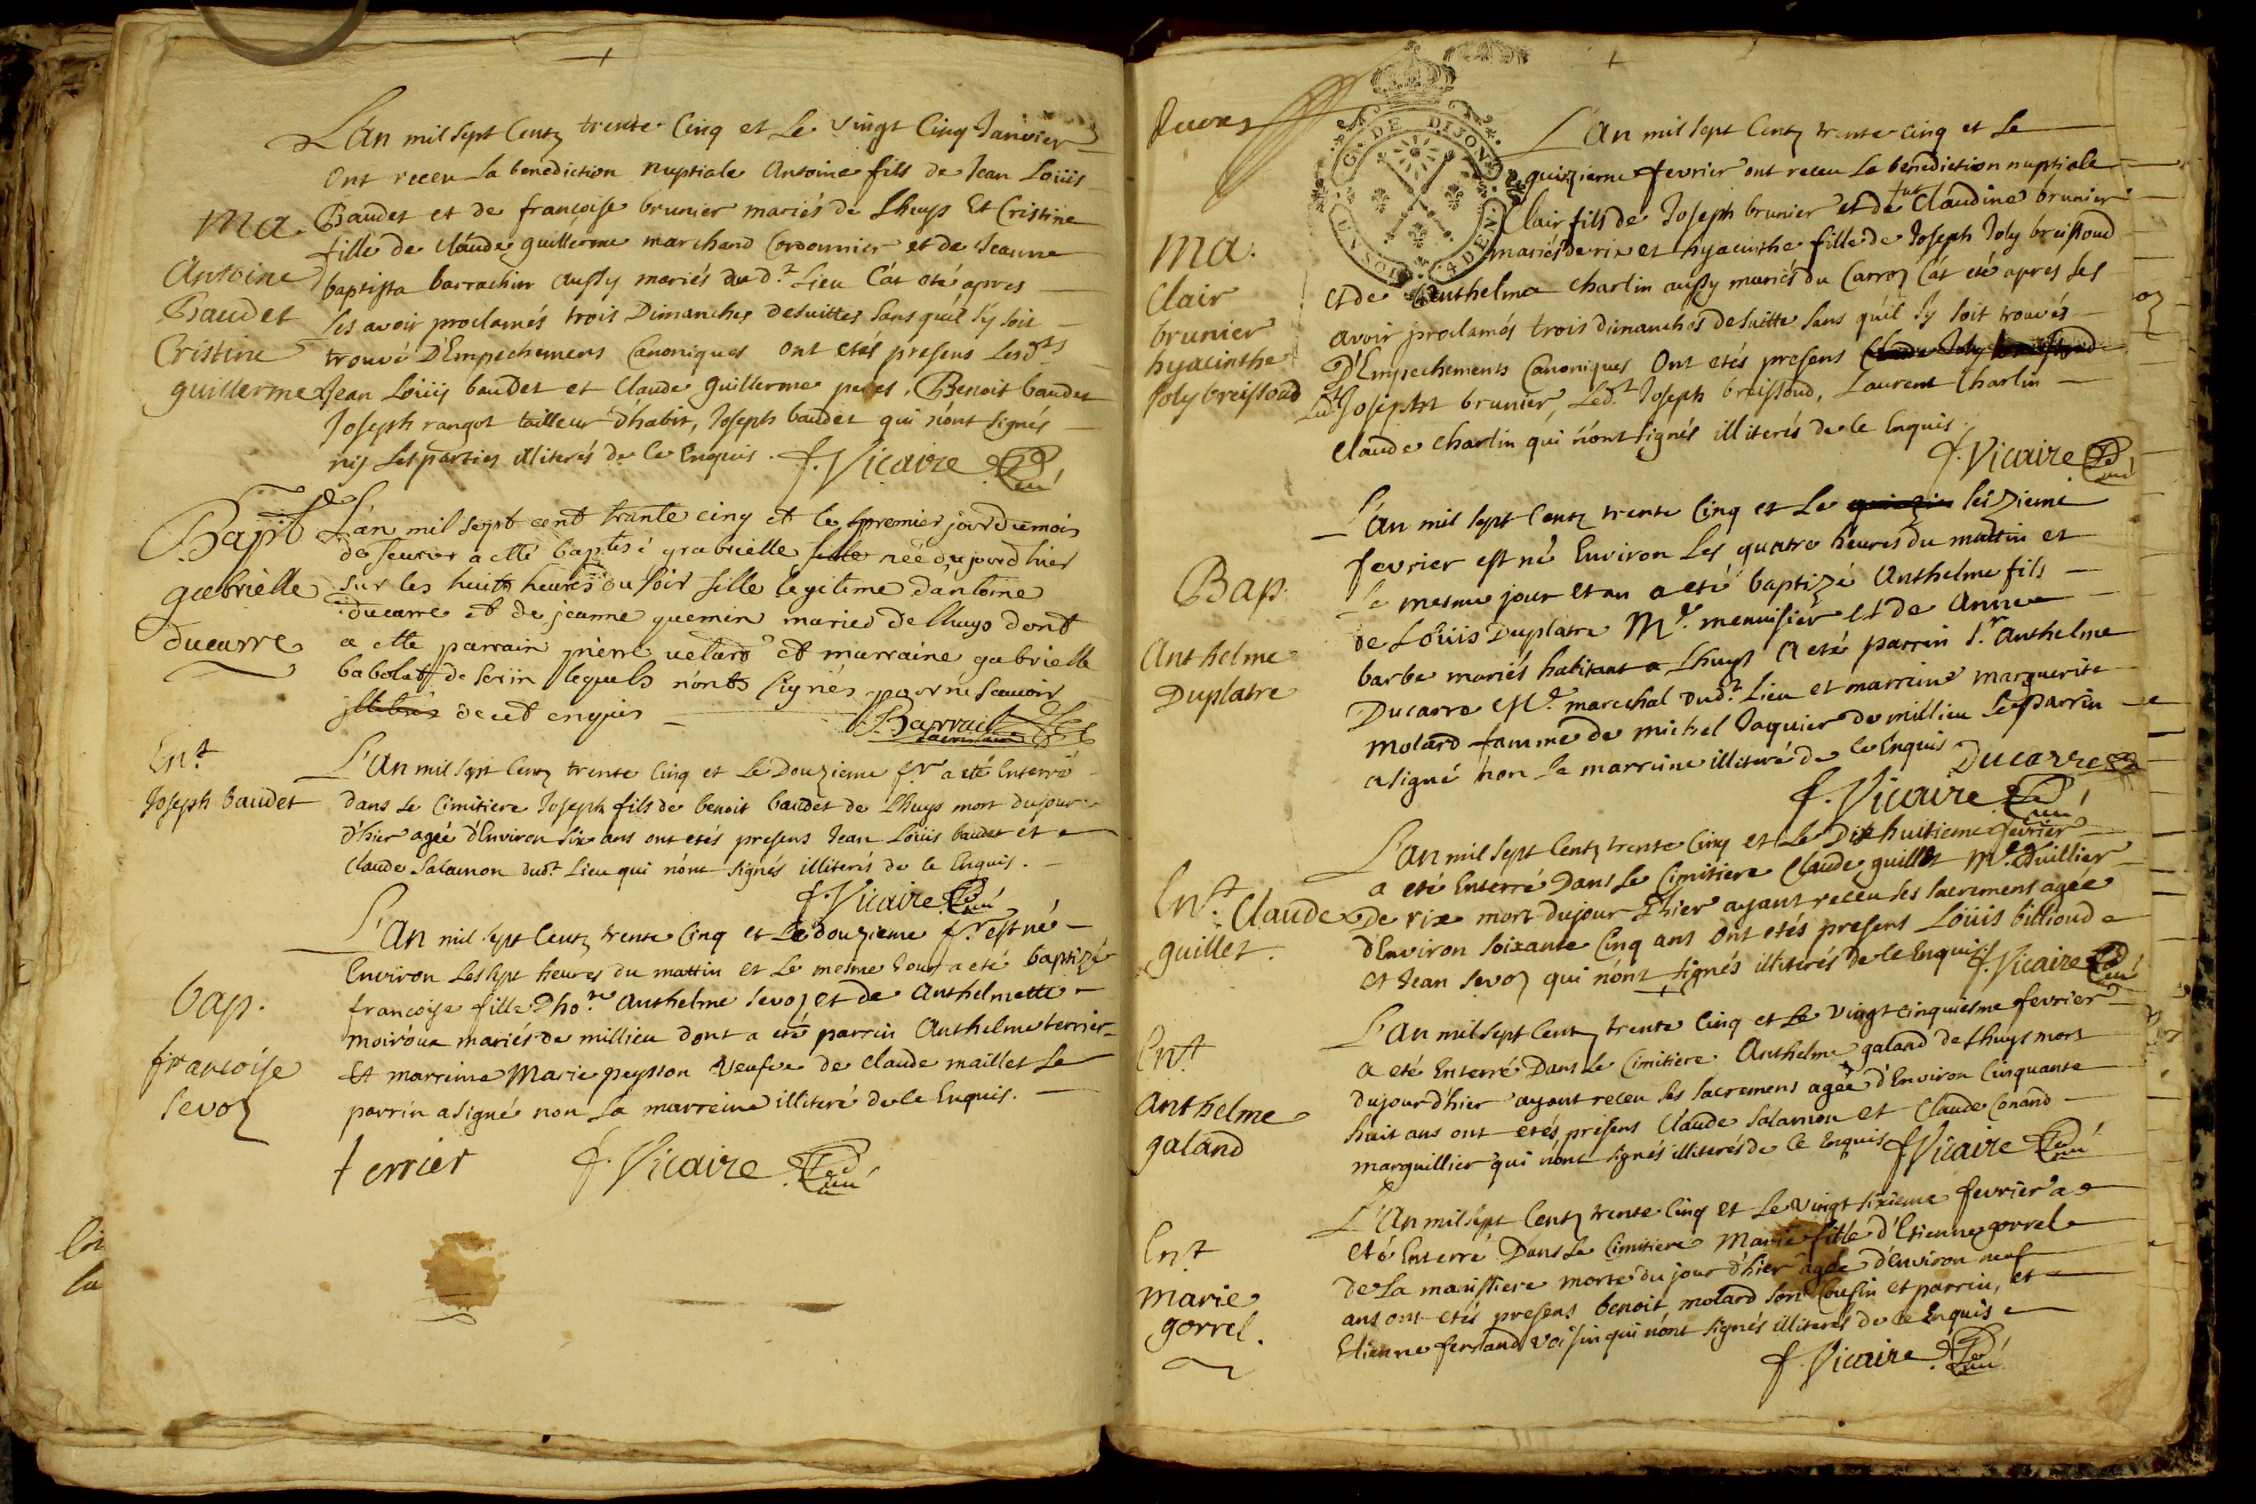 L'an mil sept Centz trente Cinq et Le vingt Cinq Janvier
Ont receu La benediction nuptiale Antoine fils de Jean Loüis
Ma. Baudet et de françoise brunier mariés de Lhuys Et Cristine
fille de Claude guillerme marchand Cordonnier et de Jeanne
Antoine baptista barrachin aussy mariés dud.t Lieu C'at eté apres
Baudet Les avoir proclamés trois Dimanches desuittes sans qu'il s'y soit
Cristine trouvé D'Empechemens Canoniques ont etés presens Lesd.ts
guillerme Jean Loüis baudet et Claude guillerme peres, Benoit baudet
Joseph rangot tailleur d'habit, Joseph baudet qui n'ont signés
nij Les parties illiterés de Ce Enquis. f. Vicaire Curé
Bapt L'an mil sept cent trante cinq et le premier jour du mois
de feurier a etté baptisé grabrielle fille née dujourd hier
gabrielle sur les huits heures du soir fille legitime d'antoine
ducarre et de jeanne guemin maried de Lhuys dont
ducarre a ette parrain pierre uetard et marraine gabrielle
babolat de seiin lequels n'onts signés pour ne scauoir
illiterés de cet enquis Barrachin
Ent L'An mil sept Centz trente Cinq et Le Douzieme fr a eté Enterré
Joseph baudet dans Le Cimitiere Joseph fils de benoit baudet de Lhuys mort dujour
d'hier agée d'Environ six ans ont etés presens Jean Loüis baudet et
Claude Salamon dud.t Lieu qui n'ont signés illiterés de Ce Enquis.
f. Vicaire Curé
L'An mil sept Centz trente Cinq et Le douzieme fr est né
Environ Les sept heures du mattin et Le mesme Jour a eté baptizé
bap. francoise fille d'ho.te Anthelme Sevoz et de Anthelmette
moiroux mariés de millieu dont a eté parrin Anthelme terrier
françoise Et marreine Marie peysson Veufve de Claude maillet Le
Sevoz parrin a signé non La marreine illiteré de Ce Enquis.
terrier f. Vicaire Curé
G. DE DIJON
4 DEN.
L'An mil sept Centz trente cinq et Le
quinzieme fevrier ont receu La benediction nuptiale
Clair fils de Joseph brunier et de fut Claudine brunier
Ma. mariés de rix et hyacinthe fille de Joseph Joly breissoud
Clair et de Anthelma Charlin aussy mariés du Carroz C'at eté apres Les
brunier avoir proclamés trois dimanches desuitte sans qu'il s'y soit trouvés
hyacinthe D'Empechements Canoniques Ont etés presens Claude Joly breissoud
Joly breissoud Led.t Joseph brunier, Led.t Joseph breissoud, Laurent Charlin
Claude Charlin qui n'ont signés illiterés de Ce Enquis.
f. Vicaire Curé
L'An mil sept Centz trente Cinq et Le seizieme
fevrier est né Environ Les quatre heures du mattin et
Bap. Le mesme jour et an a eté baptizé Anthelme fils
de Loüis Duplatre M.e menuisier et de Anne
Anthelme barbe mariés habitant a Lhuys a eté parrin S.r Anthelme
Duplatre Ducarre M.e marechal dud.t Lieu et marreine marguerite
molard famme de michel Jaquier de millieu Le parrin
a signé non La marreine illiteré de Ce Enquis Ducarre
f. Vicaire Curé
L'An mil sept Centz trente Cinq et Le Dix huitieme fevrier
a eté Enterré Dans Le Cimitiere Claude guillet M.e
Ent. Claude De rix mort dujour d'hier ayant receu Les sacremens agée
guillet. d'Environ soixante Cinq ans Ont etés presens Loüis billioud
et Jean Sevoz qui n'ont signés illiterés de Ce Enquis f. Vicaire Curé
L'An mil sept Centz trente Cinq et Le vingt cinquiesme fevrier
Ent a eté Enterré Dans Le Cimitiere Anthelme galand de Lhuys mort
anthelme dujour d'hier ayant receu Les sacremens agée d'Environ Cinquante
galand huit ans ont etés presens Claude Salamon et Claude Conand
marguillier qui n'ont signés illiterés de Ce Enquis f. Vicaire Curé
L'An mil sept Centz trente Cinq et Le Vingt sixieme fevrier a
Ent eté Enterré Dans Le Cimitiere Marie fille d'Etienne gorrel
Marie de La manissiere morte du jour d'hier agée d'Environ neuf
gorrel. ans ont etés presens benoit molard son Cousin et parrin, et
Etienne ferrand Voisin qui n'ont signés illiterés de Ce Enquis
f. Vicaire Curé